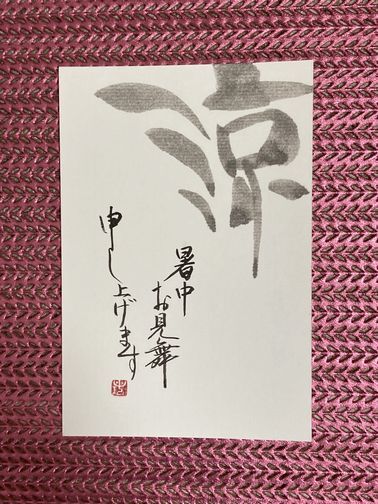 涼
暑中
お見舞
申し上げます